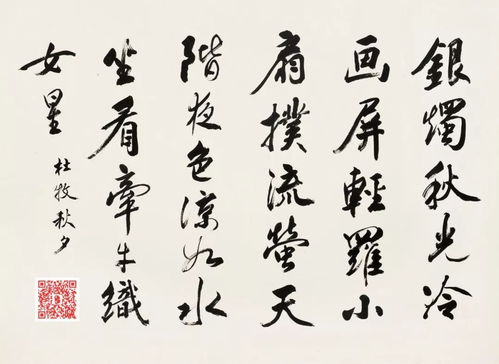 銀燭秋光冷
画屏輕羅小
扇撲流螢天
階夜色涼如水
坐看牽牛織
女星
杜牧秋夕